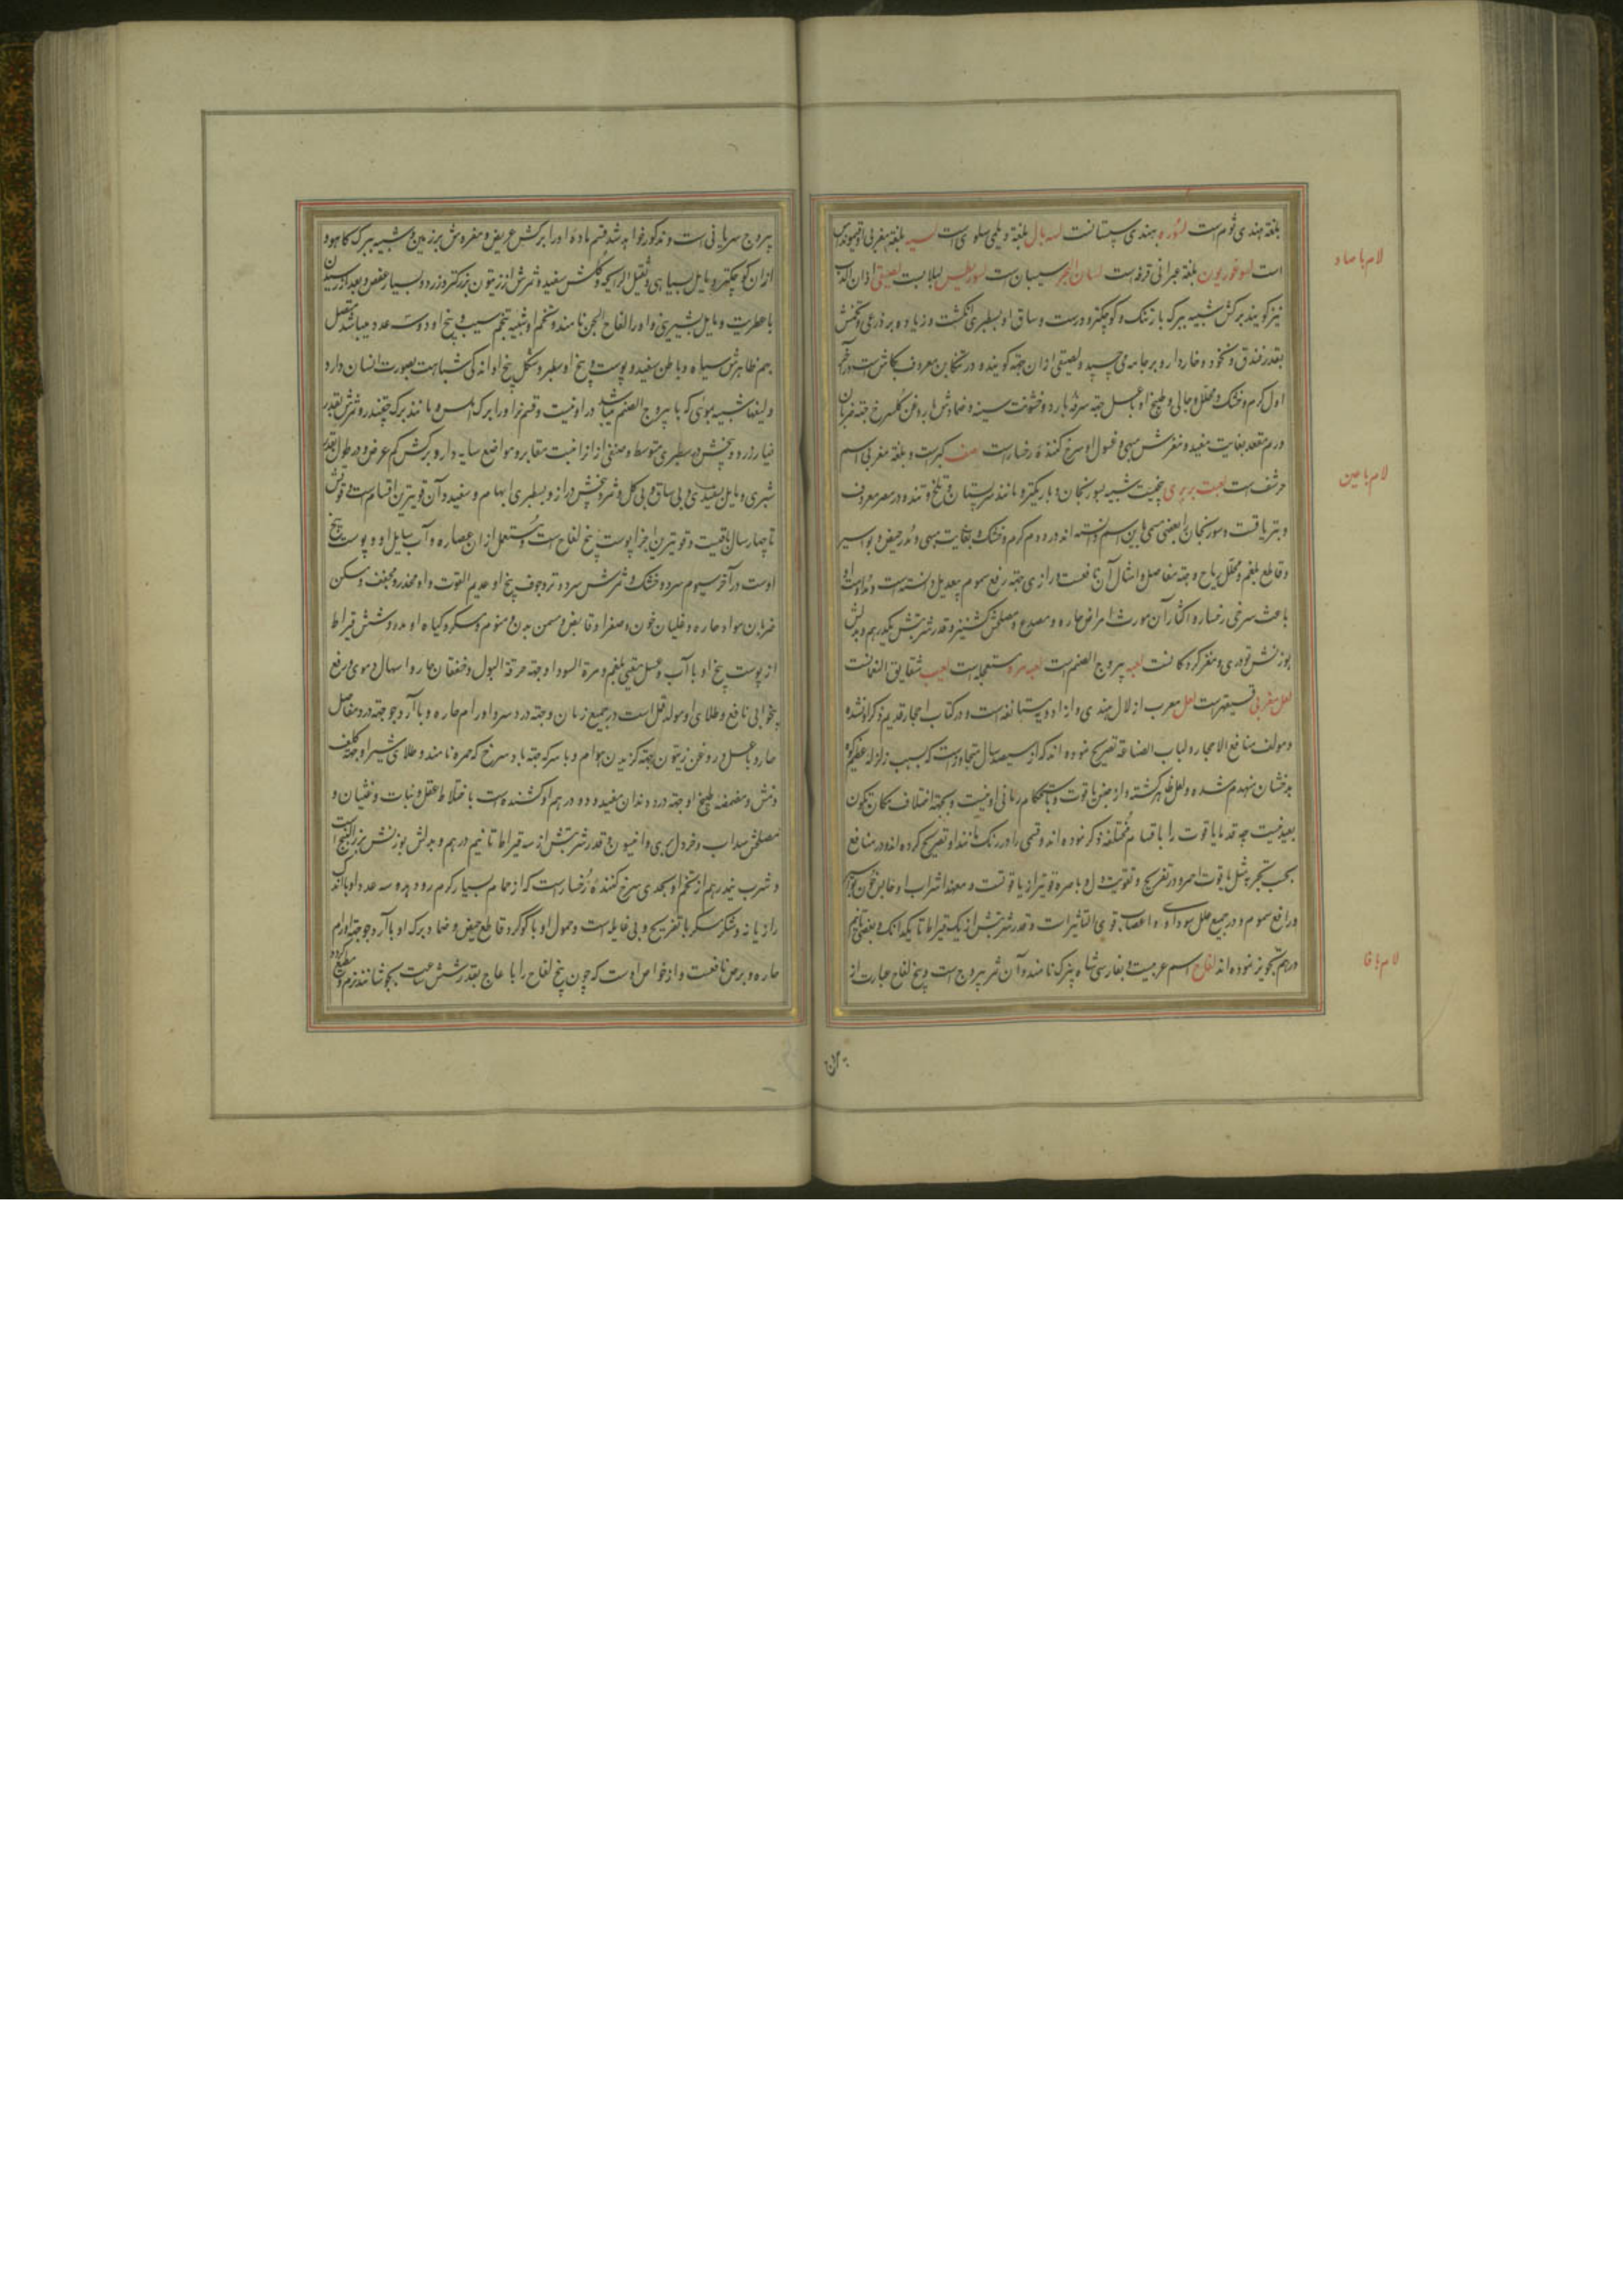 بلغة هندی ثوم است لسوره بهندی سپستانست لسه بال بلغة دیلمی سلوی است لسیه بلغة مغربی
لام با صاد
است بلغة عبرانی قرفه است لسان سپستان است لبلابست لصیقی اذان
نیز کویند برکش شبیه ببرک بارتنک و کوچکتر و درست و ساق او بسطبری انکشت و زیاده بر ذرعی و تخمش
بقدر فندق و نخود و خاردار و بر جامه می‌چسپد و لصیقی ازان جهة کویند و در تنکابن معروف است در آخر
اول کرم و خشک و محلل و جالی و طبیخ او با عسل جهة سرفه بارد و خشونت سینه و ضمادش با روغن کلسرخ جهة ضربان
ورم مقعد بغایت مفید و مغزش مبهی و غسول او سرخ کنندهٔ رخسار است لصف کبر است و بلغة مغربی اسم
لام با عین
حرشف است لعبت بربری بیخیست شبیه بسورنجان و باریکتر و مانند سر پستان و تلخ و تند و در مصر معروف
و بتریاقست و سورنجان را بعضی مسمی باین اسم دانسته‌اند در دوم کرم و خشک و بغایت مبهی و مدر حیض و بواسیر
و قاطع بلغم و محلل ریاح و جهة مفاصل و امثال آن نافعست و رازی جهة رفع سموم بیعدیل دانسته است و مداومت او
باعث سرخی رخسار و اکثار آن مورث امراض حاره و مصدع و مصلحش کشنیز و قدر شربتش یکدرهم و بدلش
بوزنش تودری و مغز کردکانست لعبه یبروج الصنم است لعبه مره مستعجله است لعیب شقایق النعمانست
لعل مغربی است لعل معرب از لال هندی و از ادویه مستانفه است و در کتاب احجار قدیم ذکر او نشده
و مولف منافع الاحجار و لباب الصناعة تصریح نموده‌اند که از سیصد سال متجاوز است که بسبب زلزله عظیم کوه
بدخشان منهدم شده و لعل ظاهر کشته و از جنس یاقوت و باستحکام رمانی او نیست و بجهة اختلاف مکان تکون
بعید نیست چه قدما یاقوت را باقسام مختلفه ذکر نموده‌اند و قسمی را در رنک مانند او تصریح کرده‌اند و در منافع
بحسب تجربه مثل یاقوت احمر و در تفریح و تقویت دل و باصره قویتر از یاقوتست و معهذا شراب او حابس خون بواسیر
و رافع سموم و در جمیع علل سوداوی و اعصاب قوی التاثیر است و قدر شربتش از یک قیراط تا یکدانک و بعضی تا نیم
لام با فا
درهم تجویز نموده‌اند لفاح اسم عربیست و بفارسی شاه پیزک نامند و آن ثمر یبروج است و بیخ لفاح عبارت از
آن
یبروج سریانی است و مذکور خواهد شد قسم ماده او را برکش عریض و مفروش بر زمین و شبیه ببرک کاهو و
ازان کوچکتر و مایل بسیاهی و ثقیل الرایحه و کلش سفید و ثمرش از زیتون بزرکتر و زرد و بسیار عفص و بعد از رسیدن
با عطریت و مایل بشیرینی و او را لفاح الجن نامند و تخم او شبیه بتخم سیب و بیخ او دو و سه عدد میباشد متصل
بهم ظاهرش سیاه و باطن سفید و پوست بیخ او سطبر و شکل بیخ او اندکی شباهت بصورت انسان دارد
و لیفها شبیه بموئی که با یبروج الصنم میباشد در او نیست و قسم نر او را برک املس و مانند برک چغندر و ثمرش بقدر
خیار زرد و بیخش در سطبری متوسط و صنفی از انرا منبت مقابر و مواضع سایه دار و برکش کم عرض و در طول بقدر
شبری و مایل بسفیدی و بی ساق و بی کل و ثمر و بیخش دراز و بسطبری ابهام و سفید و آن قویترین اقسام است و قوتش
تا چهار سال باقیست و قویترین اجزا پوست بیخ لفاح است و مستعمل ازان عصاره و آب سایل او و پوست بیخ
اوست در آخر سیوم سرد و خشک و ثمرش سرد و تر و جوف بیخ او عدیم القوت و او مخدر و مجفف و مسکن
ضربان مواد حاره و غلیان خون و صفرا و قابض و مسمن بدن و منوم و مسکر و کیاه او مدر و شش قیراط
از پوست بیخ او با آب و عسل مقیئ بلغم و مرة السودا و جهة حرقة البول و خفقان حار و اسهال دموی و رفع
بیخوابی نافع و طلای او مولد قمل است در جمیع زمان و جهة درد سر و اورام حاره و با آرد جو جهة درد مفاصل
حار و با عسل و روغن زیتون جهة کزیدن هوام و با سرکه جهة باد سرخ که حمره نامند و طلای شیر او جهة کلف
و نمش و مضمضه طبیخ او جهة درد دندان مفید و دو درهم او کشنده است با ختلاط عقل و سبات و غثیان و
مصلحش سداب و خردل بری و افسنتین و قدر شربتش از سه قیراط تا نیم درهم و بدلش بوزنش بزرالبنج است
و شرب نیمدرهم از تخم او بحدی سرخ کنندهٔ رخسار است که از حمام بسیار کرم رو دهد و سه عدد او با اندک
رازیانه و شکر مسکر با تفریح و بی غایله است و حمول او با کوکرد قاطع حیض و ضماد برک او با آرد جو جهة اورام
حاره و برص نافعست و از خواص اوست که چون بیخ لفاح را با عاج بقدر شش ساعت بجوشانند نرم و مطیع کردد